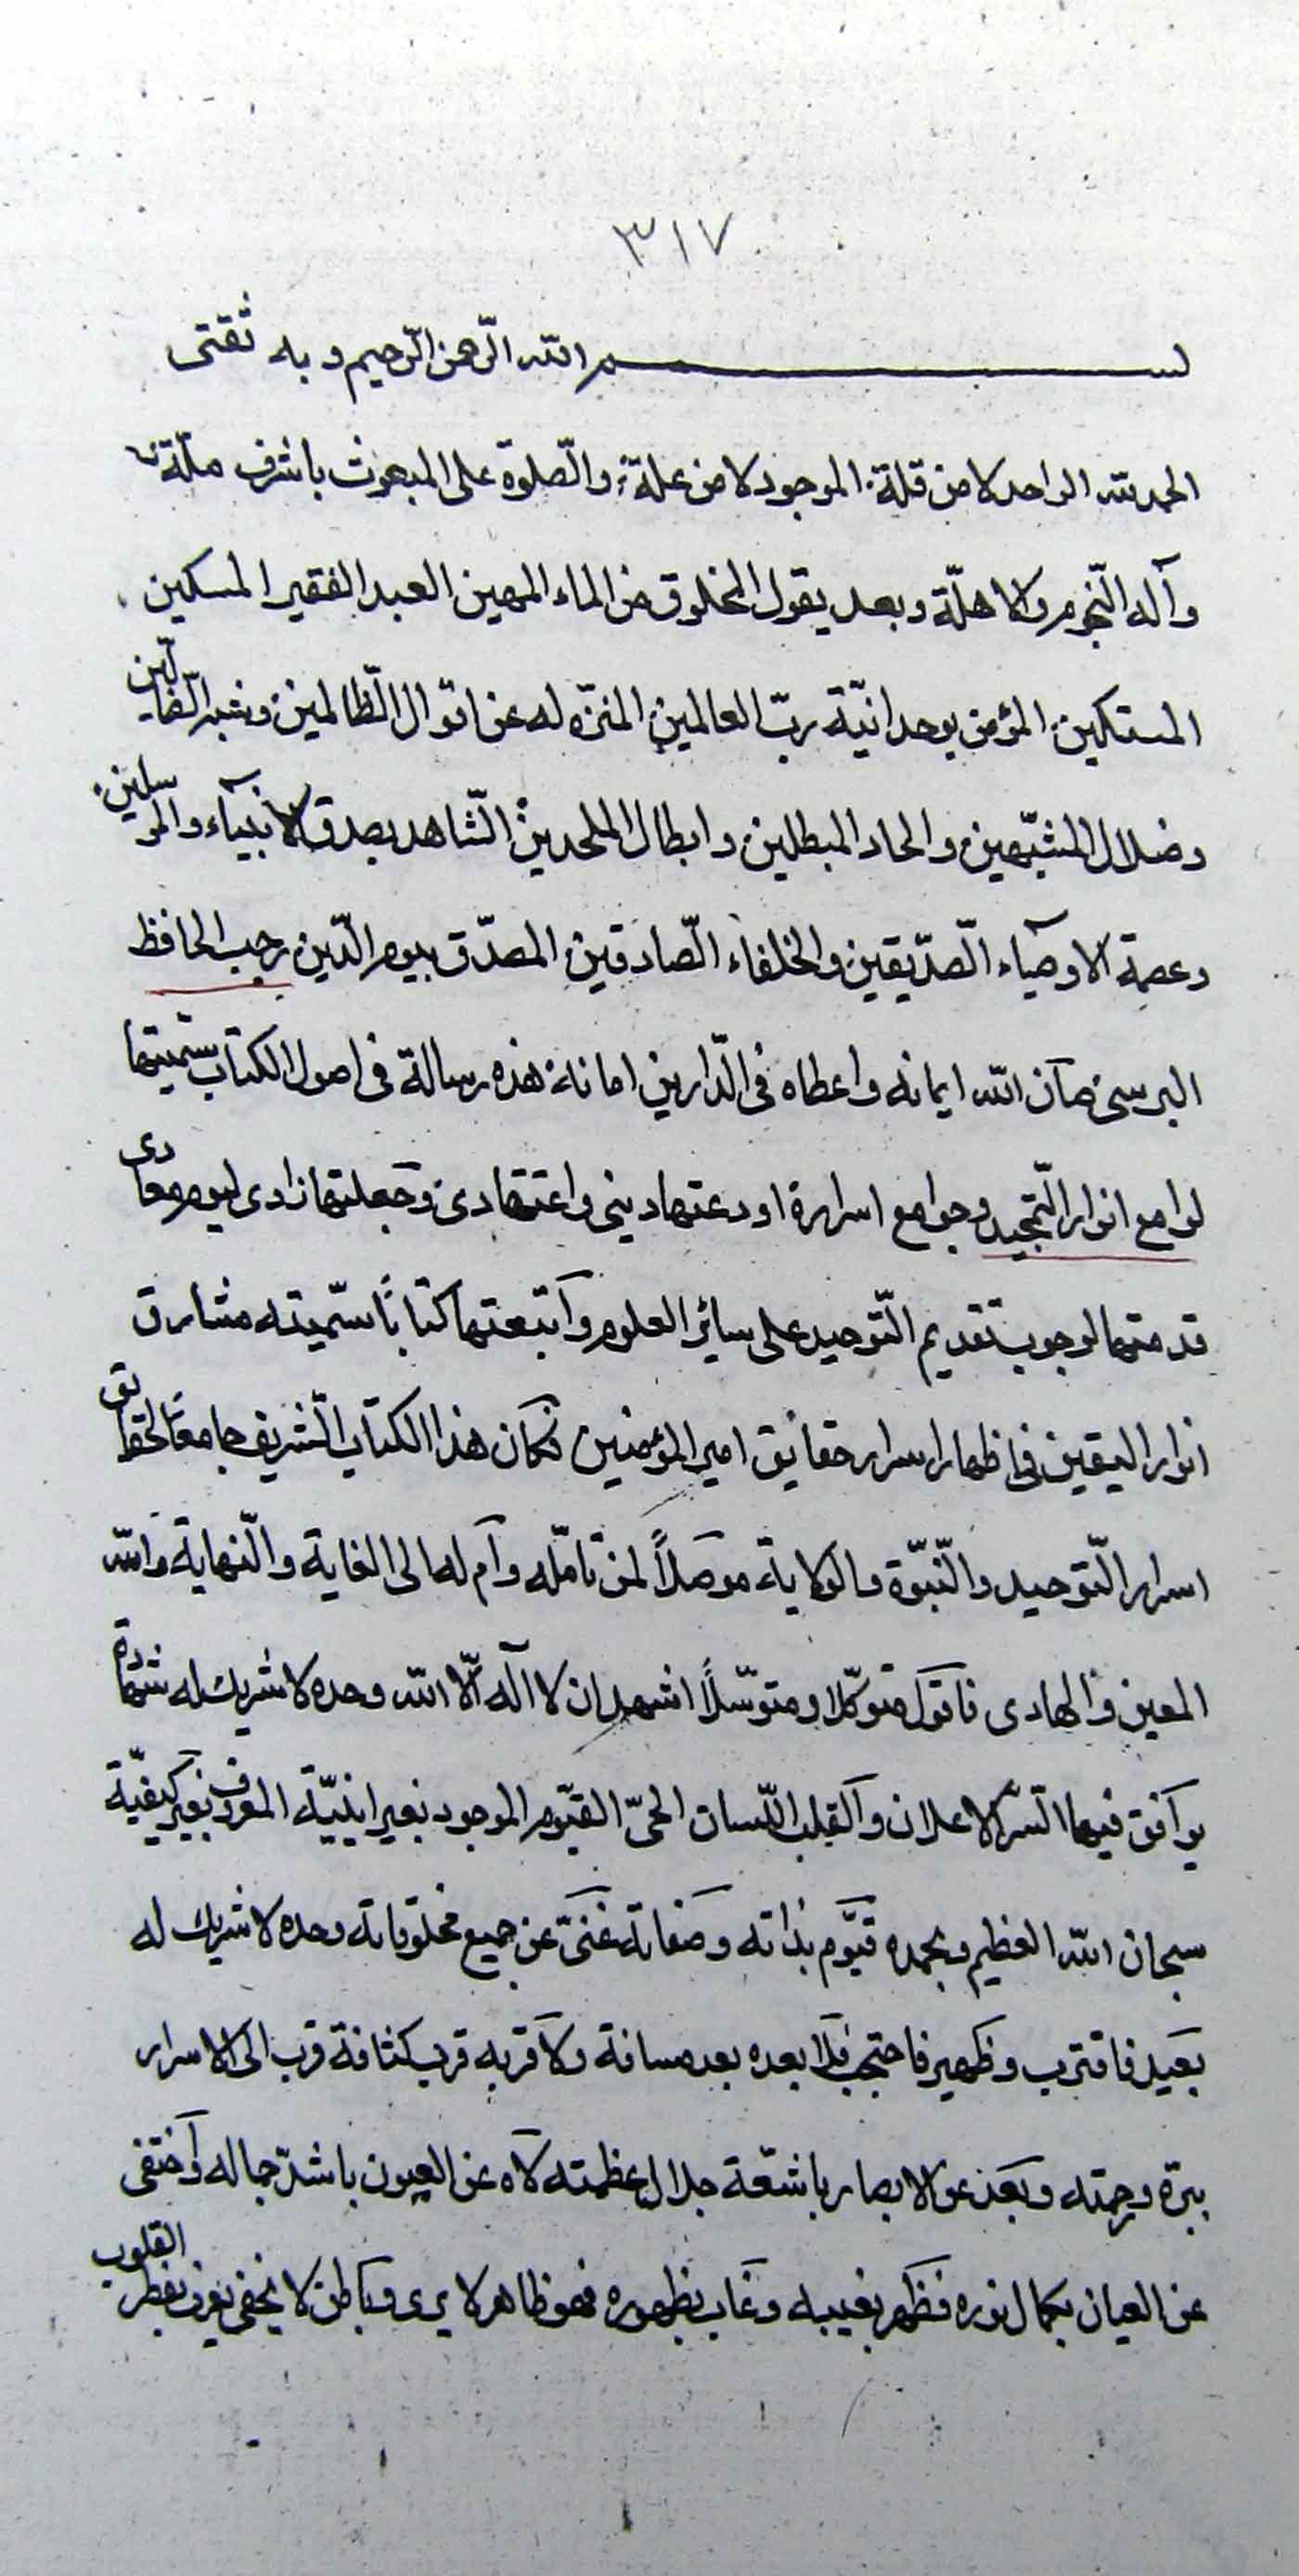 ٣١٧
بسم الله الرّحمن الرّحيم و به ثقتى
الحمد لله الواحد لا من قلة الموجود لا من علة والصّلوة على المبعوث باشرف ملّة
وآله النّجوم والاهلّة وبعد يقول المخلوق من الماء المهين العبد الفقير المسكين
المستكين المؤمن بوحدانيّة ربّ العالمين المنزّه له عن اقوال الظّالمين وشبه الضّالّين
وضلال المشبّهين والحاد المبطلين وابطال الملحدين الشّاهد بصدق الانبياء والمرسلين
وعصمة الاوصياء الصّدّيقين والخلفاء الصّادقين المصدّق بيوم الدّين رجب الحافظ
البرسى صان الله ايمانه واعطاه فى الدّارين امانه هذه رسالة فى اصول الكتاب سمّيتها
لوامع انوار التّمجيد وجوامع اسراره اودعتها دينى واعتقادى وجعلتها زادى ليوم معادى
قدمتها لوجوب تقديم التّوحيد على سائر العلوم واتبعتها كتابًا سمّيته مشارق
انوار اليقين فى اظهار اسرار حقايق امير المؤمنين فكان هذا الكتاب الشّريف جامعًا لحقايق
اسرار التّوحيد والنّبوّة والولاية موصلاً لمن تامّله وامّ له الى الغاية والنّهاية والله
المعين والهادى فاقول متوكّلا ومتوسّلاً اشهد ان لا اله الّا الله وحده لا شريك له شهادة
يوافق فيها السّرّ الاعلان والقلب اللّسان الحىّ القيّوم الموجود بغير اينيّة المعروف بغير كيفيّة
سبحان الله العظيم وبحمده قيّوم بذاته وصفاته غنىّ عن جميع مخلوقاته وحده لا شريك له
بعيد فاقترب وظهير فاحتجب فلا بعده بعد مسافة ولا قربه قرب كثافة قرب الى الاسرار
ببرّه ورحمته وبعد عن الابصار باشعّة جلال عظمته لاه عن العيون باشدّ جماله واختفى
عن العيان بكمال نوره فظهر بغيبه وغاب بظهوره فهو ظاهر لا يرى وباطن لا يخفى يعرف بفطر القلوب